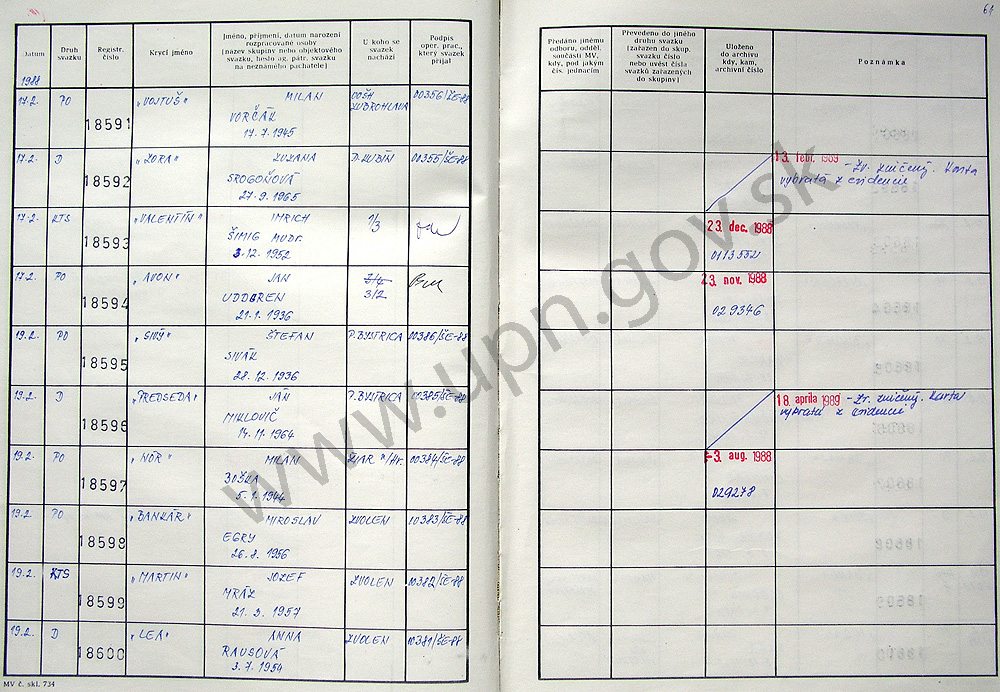 61
Datum
Druh svazku
Registr. číslo
Krycí jméno
Jméno, příjmení, datum narození
rozpracované osoby
(název skupiny nebo objektového
svazku, heslo ag. pátr. svazku
na neznámého pachatele)
U koho se
svazek
nachází
Podpis
oper. prac.,
který svazek
přijal
Předáno jinému
odboru, odděl.
součásti MV,
kdy, pod jakým
čís. jednacím
Převedeno do jiného
druhu svazku
(zařazen do skup.
svazků číslo
nebo uvést čísla
svazků zařazených
do skupiny)
Uloženo
do archivu
kdy, kam,
archivní číslo
Poznámka
1988
17.2. PO 18591 „VOJTUŠ" MILAN
VORČÁK
17.7.1945
OOŠH
ZUBROHLAVA
00356/ŠE-88
17.2. D 18592 „ZORA" ZUZANA
SROGOŇOVÁ
27.9.1965
D.KUBÍN
00355/ŠE-88
13. febr. 1989 - Zv. zničený. Karta
vybratá z evidencie
17.2. KTS 18593 „VALENTÍN" IMRICH
ŠIMIG MUDr.
3.12.1952
1/3
23. dec. 1988
0113552
17.2. PO 18594 „AVON" JÁN
UDDGREN
21.1.1936
3/2
23. nov. 1988
029346
19.2. PO 18595 „SIVÝ" ŠTEFAN
SIVÁK
28.12.1936
P.BYSTRICA
00386/ŠE-88
19.2. D 18596 „PREDSEDA" JÁN
MIKLOVIČ
14.11.1964
P.BYSTRICA
00385/ŠE-88
18. apríla 1989 - Zv. zničený. Karta
vybratá z evidencie
19.2. PO 18597 „NÓR" MILAN
BOŠKA
5.1.1944
ŽIAR n/Hr.
00384/ŠE-88
-3. aug. 1988
029278
19.2. PO 18598 „BANKÁR" MIROSLAV
EGRY
26.8.1956
ZVOLEN
00383/ŠE-88
19.2. KTS 18599 „MARTIN" JOZEF
MRÁZ
21.3.1957
ZVOLEN
00382/ŠE-88
19.2. D 18600 „LEA" ANNA
RAUSOVÁ
3.7.1954
ZVOLEN
00381/ŠE-88
MV č. skl. 734
www.upn.gov.sk